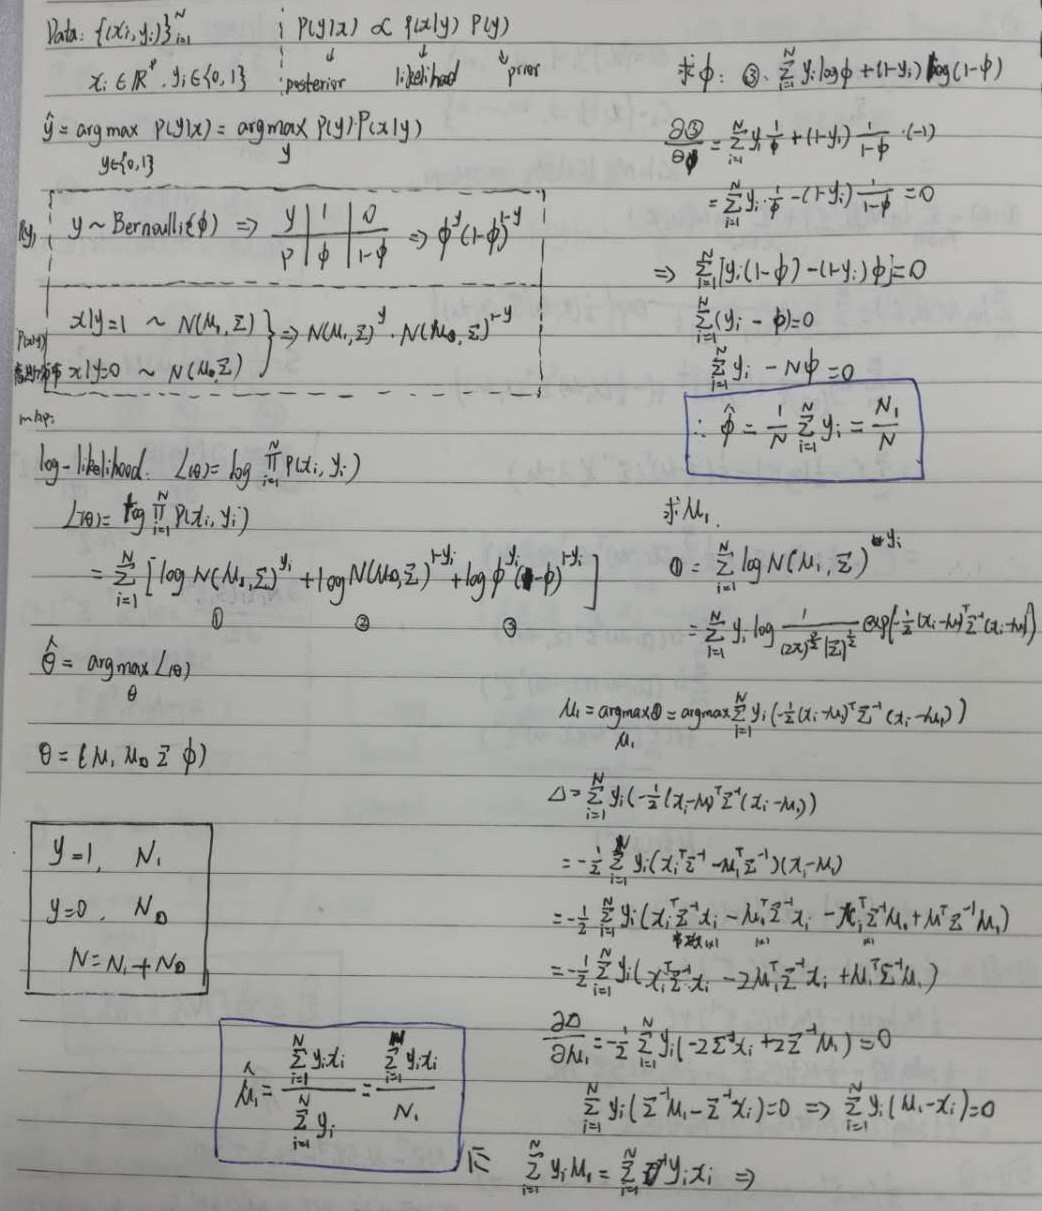 Data: {(xi, yi)}ᴺᵢ₌₁
xi ∈ ℝᵖ, yi ∈ {0, 1}
P(y|x) ∝ P(x|y) P(y)
↓ ↓ ↓
posterior likelihood prior
ŷ = argmax P(y|x) = argmax P(y) P(x|y)
y∈{0,1} y
P(y) y ~ Bernoulli(φ) ⇒ y | 1 | 0 ⇒ φ^y (1-φ)^{1-y}
P | φ | 1-φ
P(x|y) x|y=1 ~ N(μ₁, Σ) } ⇒ N(μ₁, Σ)^y · N(μ₀, Σ)^{1-y}
x|y=0 ~ N(μ₀, Σ)
MAP:
log-likelihood: L(θ) = log ∏_{i=1}^N P(xi, yi)
L(θ) = log ∏_{i=1}^N P(xi, yi)
= Σ_{i=1}^N [log N(μ₁, Σ)^{yi} + log N(μ₀, Σ)^{1-yi} + log φ^{yi} (1-φ)^{1-yi}]
① ② ③
θ̂ = argmax L(θ)
θ
θ = (μ₁ μ₀ Σ φ)
y=1, N₁
y=0, N₀
N = N₁ + N₀
求φ: ③. Σ_{i=1}^N yi log φ + (1-yi) log (1-φ)
∂③/∂φ = Σ_{i=1}^N yi 1/φ + (1-yi) 1/(1-φ) · (-1)
= Σ_{i=1}^N yi · 1/φ - (1-yi) 1/(1-φ) = 0
⇒ Σ_{i=1}^N [yi(1-φ) - (1-yi) φ] = 0
Σ_{i=1}^N (yi - φ) = 0
Σ_{i=1}^N yi - Nφ = 0
∴ φ̂ = 1/N Σ_{i=1}^N yi = N₁/N
求μ₁.
① = Σ_{i=1}^N log N(μ₁, Σ)^{yi}
= Σ_{i=1}^N yi log 1/((2π)^{p/2} |Σ|^{1/2}) exp{-1/2 (xi-μ₁)ᵀ Σ⁻¹ (xi-μ₁)}
μ₁ = argmax ① = argmax Σ_{i=1}^N yi (-1/2 (xi-μ₁)ᵀ Σ⁻¹ (xi-μ₁))
μ₁
Δ = Σ_{i=1}^N yi (-1/2 (xi-μ₁)ᵀ Σ⁻¹ (xi-μ₁))
= -1/2 Σ_{i=1}^N yi (xiᵀ Σ⁻¹ - μ₁ᵀ Σ⁻¹)(xi-μ₁)
= -1/2 Σ_{i=1}^N yi (xiᵀ Σ⁻¹ xi - μ₁ᵀ Σ⁻¹ xi - xiᵀ Σ⁻¹ μ₁ + μ₁ᵀ Σ⁻¹ μ₁)
1×1 1×1
= -1/2 Σ_{i=1}^N yi (xiᵀ Σ⁻¹ xi - 2μ₁ᵀ Σ⁻¹ xi + μ₁ᵀ Σ⁻¹ μ₁)
∂Δ/∂μ₁ = -1/2 Σ_{i=1}^N yi (-2Σ⁻¹ xi + 2Σ⁻¹ μ₁) = 0
Σ_{i=1}^N yi (Σ⁻¹ μ₁ - Σ⁻¹ xi) = 0 ⇒ Σ_{i=1}^N yi (μ₁ - xi) = 0
Σ_{i=1}^N yi μ₁ = Σ_{i=1}^N yi xi ⇒
μ̂₁ = Σ_{i=1}^N yi xi / Σ_{i=1}^N yi = Σ_{i=1}^N yi xi / N₁